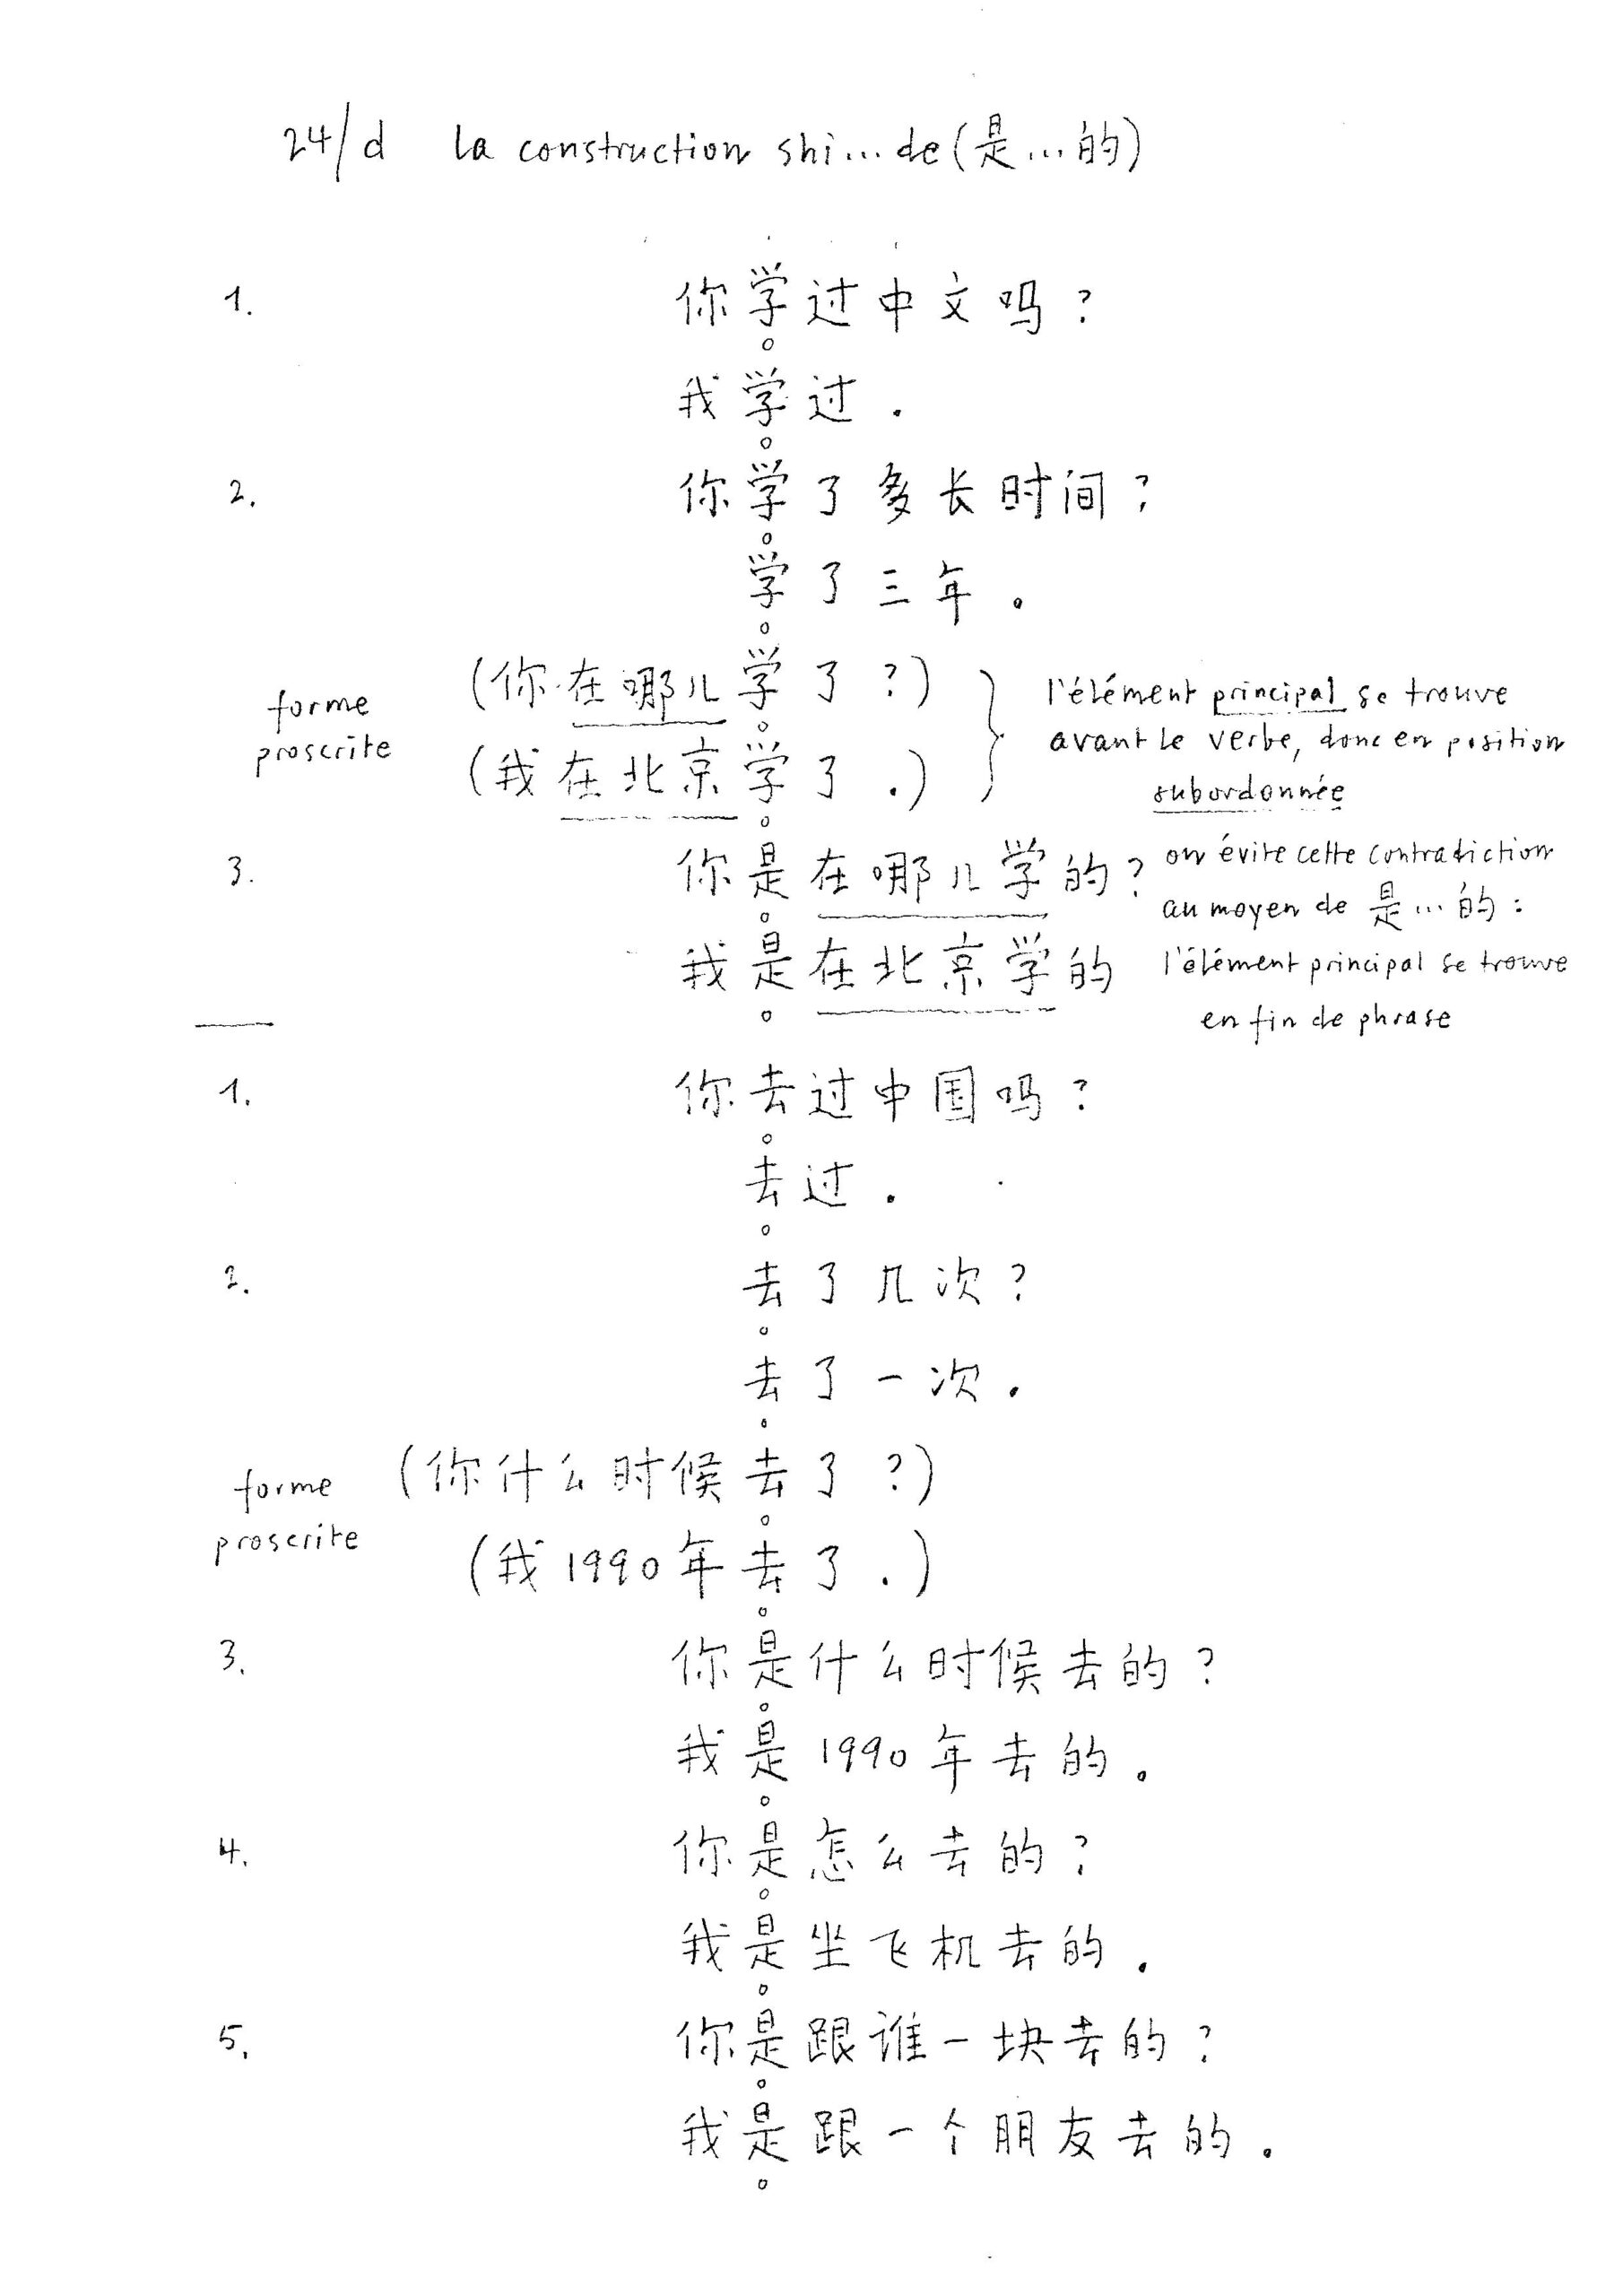 24/d la construction shi...de (是...的)
1. 你学过中文吗?
我学过.
2. 你学了多长时间?
学了三年。
forme proscrite
(你在哪儿学了?)
(我在北京学了.)
l'élément principal se trouve
avant le verbe, donc en position
subordonnée
3. 你是在哪儿学的?
我是在北京学的
on évite cette contradiction
au moyen de 是...的:
l'élément principal se trouve
en fin de phrase
1. 你去过中国吗?
去过.
2. 去了几次?
去了一次.
forme proscrite
(你什么时候去了?)
(我1990年去了.)
3. 你是什么时候去的?
我是1990年去的.
4. 你是怎么去的?
我是坐飞机去的.
5. 你是跟谁一块去的?
我是跟一个朋友去的.